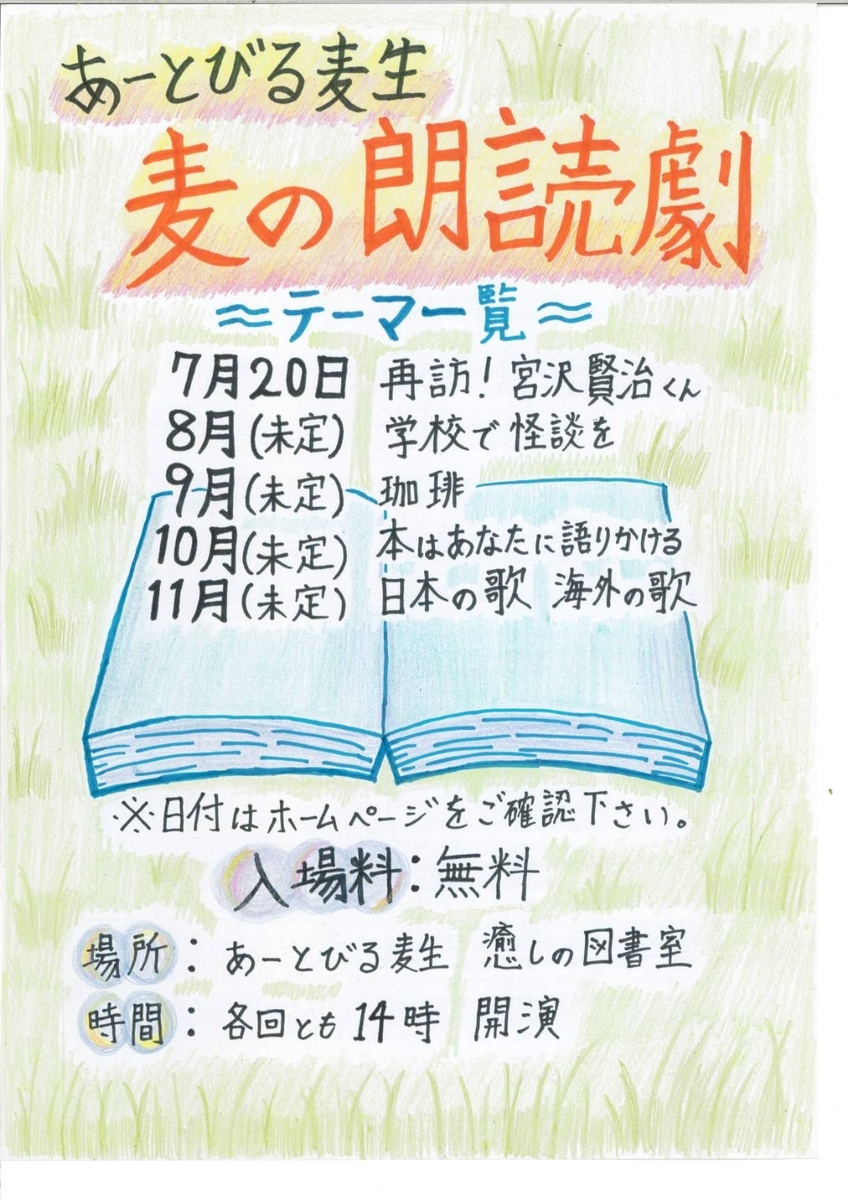 あーとびる麦生
麦の朗読劇
≈テーマ一覧≈
7月20日 再訪！宮沢賢治くん
8月(未定) 学校で怪談を
9月(未定) 珈琲
10月(未定) 本はあなたに語りかける
11月(未定) 日本の歌 海外の歌
※日付はホームページをご確認下さい。
入場料：無料
場所：あーとびる麦生 癒しの図書室
時間：各回とも14時 開演